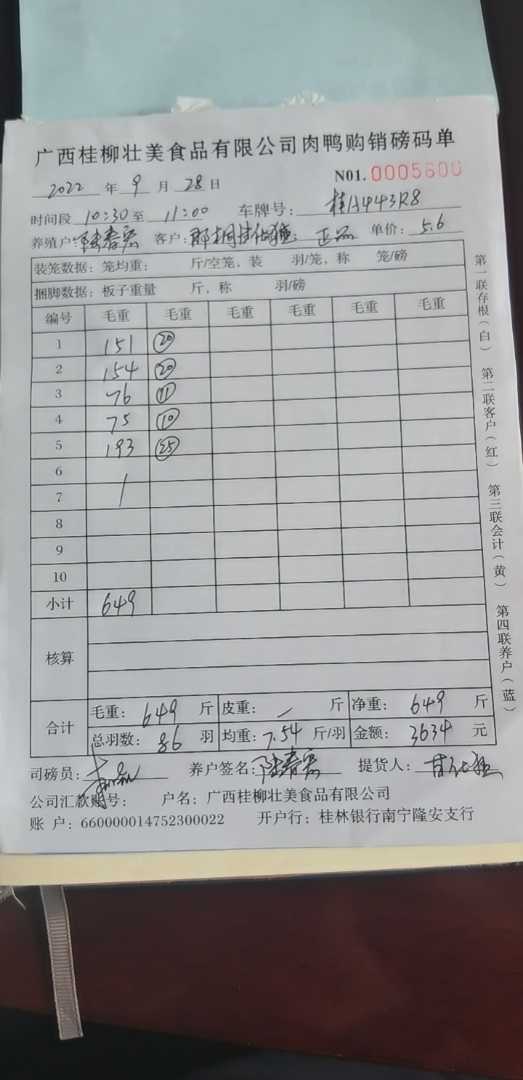 广西桂柳壮美食品有限公司肉鸭购销磅码单
2022 年 9 月 28 日 N01. 0005600
时间段 10:30 至 11:00 车牌号: 桂A443R8
养殖户: 陆春宏 客户: 正品 单价: 5.6
装笼数据: 笼均重: 斤/空笼, 装 羽/笼, 称 笼/磅
捆脚数据: 板子重量 斤, 称 羽/磅
编号 毛重 毛重 毛重 毛重 毛重 毛重
1 151 20
2 154 20
3 76 11
4 75 10
5 193 25
6
7 /
8
9
10
小计 649
核算
合计
毛重: 649 斤 皮重: / 斤 净重: 649 斤
总羽数: 86 羽 均重: 7.54 斤/羽 金额: 3634 元
司磅员: 养户签名: 陆春宏 提货人:
公司汇款账号: 户名: 广西桂柳壮美食品有限公司
账 户: 660000014752300022 开户行: 桂林银行南宁隆安支行
第一联存根(白) 第二联客户(红) 第三联会计(黄) 第四联养户(蓝)